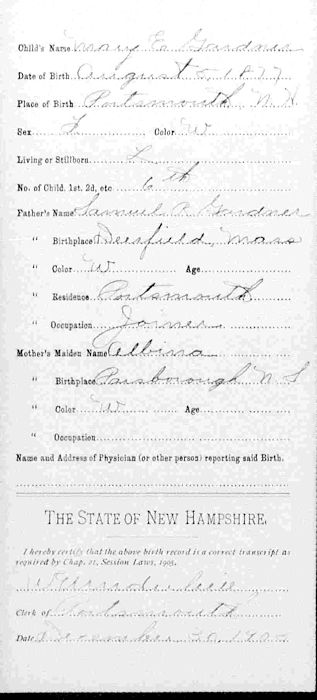 Child's Name Mary E. Gardner
Date of Birth August 5, 1877
Place of Birth Portsmouth N.H
Sex F Color W
Living or Stillborn L
No. of Child. 1st. 2d, etc 6th
Father's Name Samuel P. Gardner
" Birthplace Deerfield, Mass
" Color W Age
" Residence Portsmouth
" Occupation Joiner
Mother's Maiden Name Albina
" Birthplace Parsborough N. S
" Color W Age
" Occupation
Name and Address of Physician (or other person) reporting said Birth.
THE STATE OF NEW HAMPSHIRE.
I hereby certify that the above birth record is a correct transcript as
required by Chap. 21, Session Laws, 1905.
Clerk of Portsmouth
Date December 30, 190